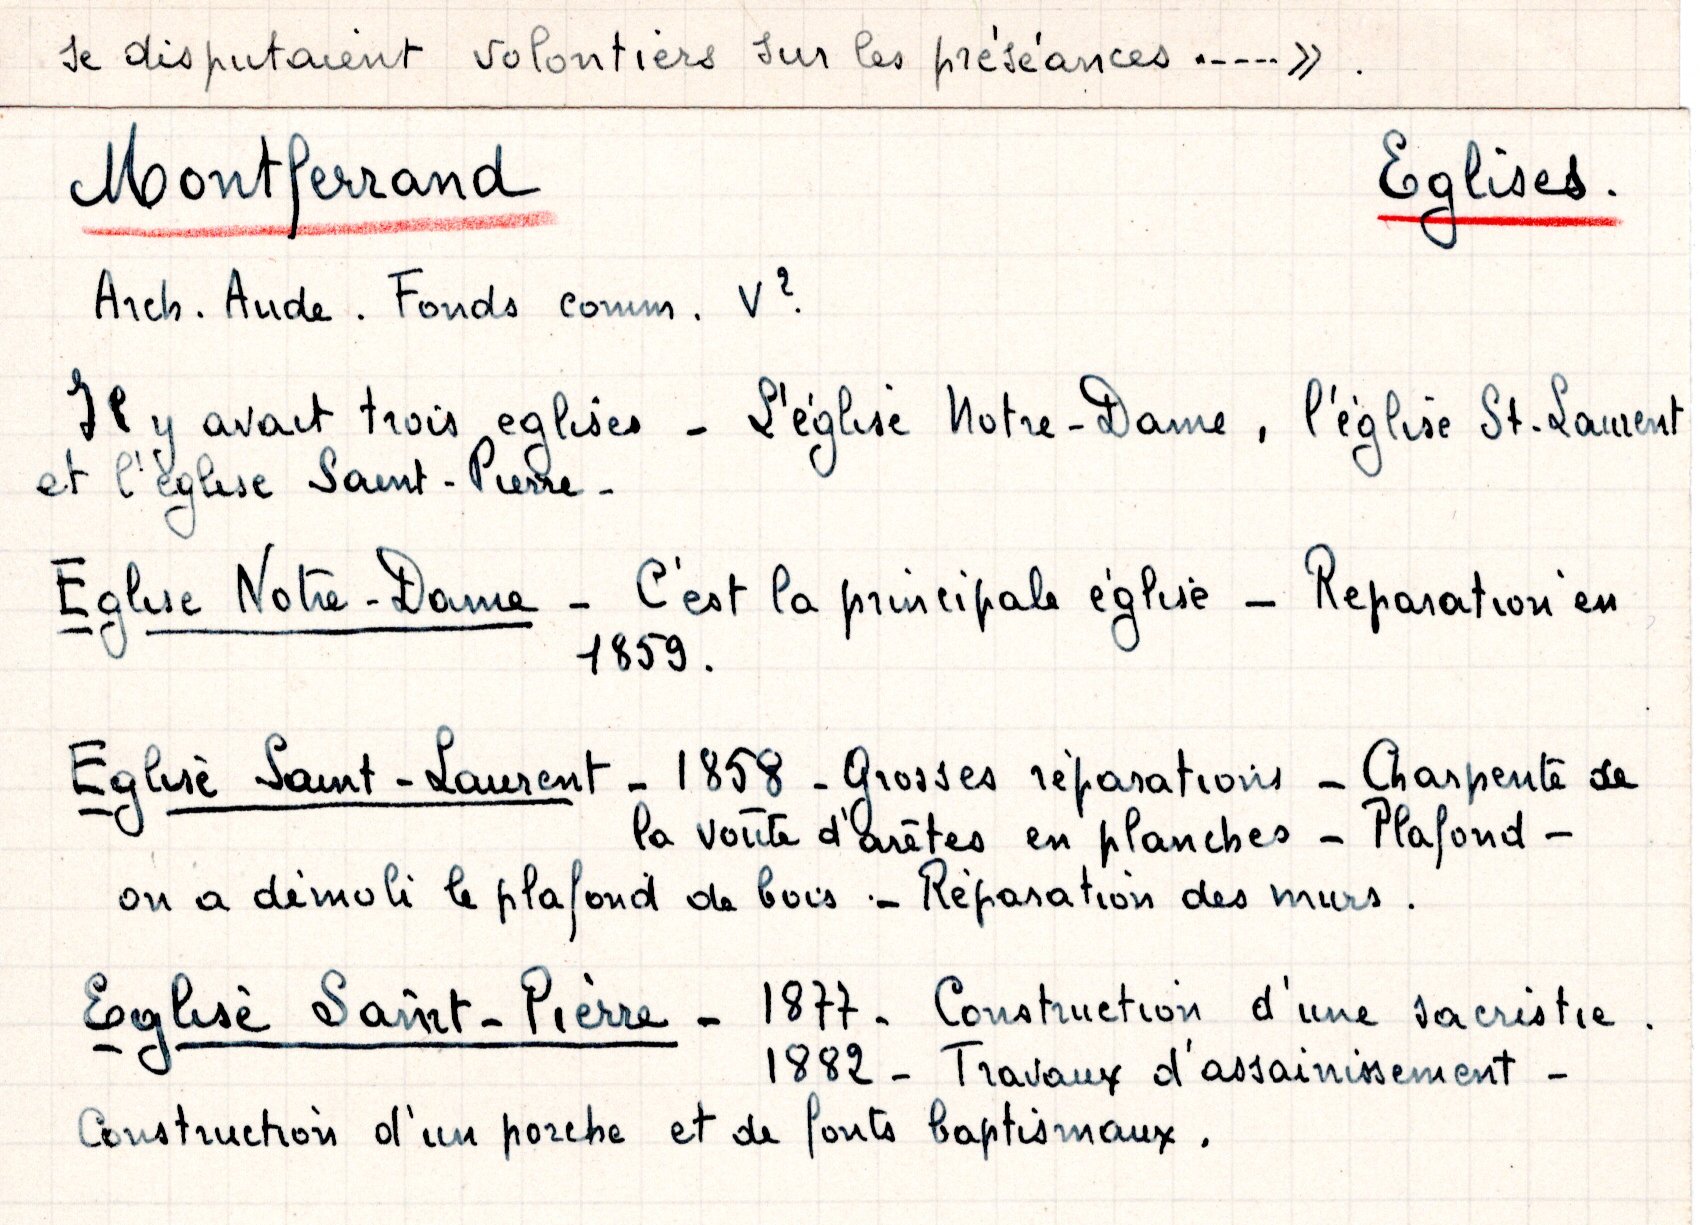 se disputaient volontiers sur les préséances .-----» .
Montferrand Eglises.
Arch. Aude. Fonds comm. V².
Il y avait trois eglises - L'église Notre-Dame, l'église St-Laurent
et l'église Saint-Pierre -
Eglise Notre-Dame - C'est la principale église - Reparation en
1859.
Eglise Saint-Laurent - 1858 - Grosses réparations - Charpente de
la voûte d'arêtes en planches - Plafond -
on a démoli le plafond de bois .- Réparation des murs.
Eglise Saint-Pierre - 1877 - Construction d'une sacristie.
1882 - Travaux d'assainissement -
Construction d'un porche et de fonts baptismaux.